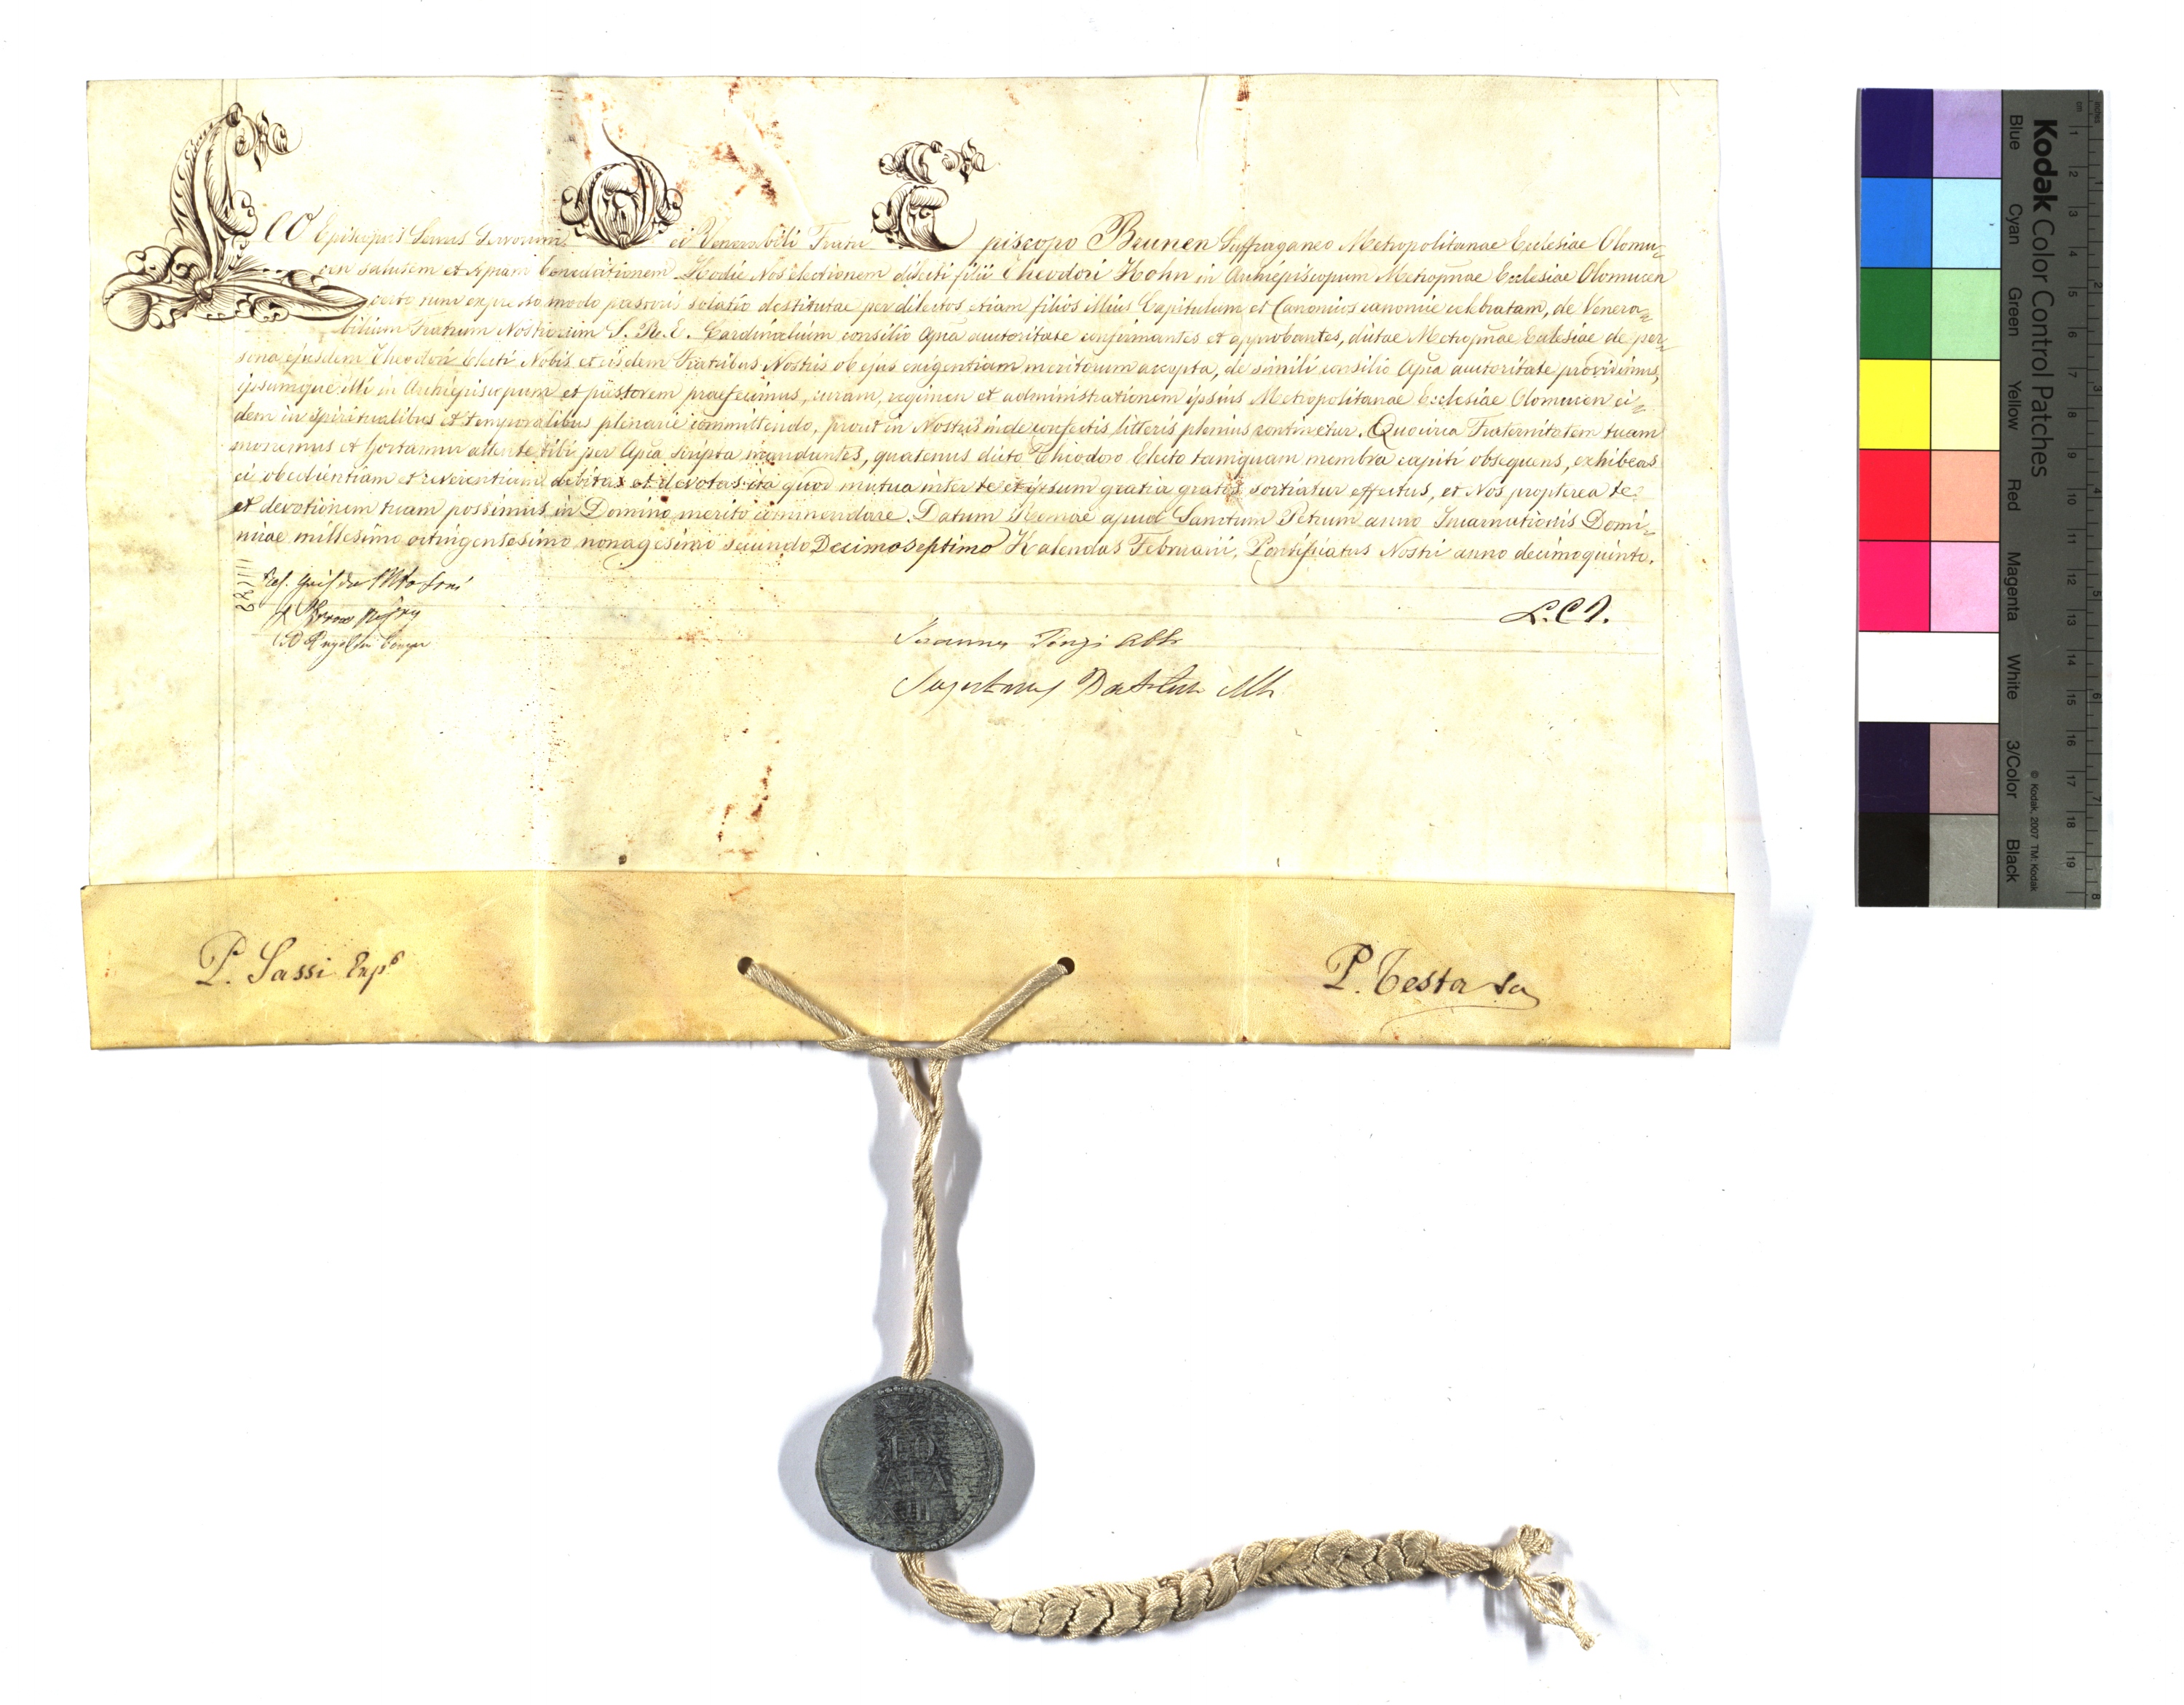 LEO Episcopus Servus Servorum Dei Venerabili Fratri Episcopo Brunen Suffraganeo Metropolitanae Ecclesiae Olomu-
cen salutem et Aplam benedictionem. Hodie Nos electionem dilecti filii Theodori Kohn in Archiepiscopum Metropnae Ecclesiae Olomucen
certo tunc expresso modo pastoris solatio destitutae per dilectos etiam filios illius Capitulum et Canonicos canonice celebratam, de Venera-
bilium Fratrum Nostrorum S. R. E. Cardinalium consilio Apca auctoritate confirmantes et approbantes, dictae Metropnae Ecclesiae de per-
sona ejusdem Theodori Electi Nobis et eisdem Fratribus Nostris ob ejus exigentiam meritorum accepta, de simili consilio Apca auctoritate providimus,
ipsumque illi in Archiepiscopum et pastorem praefecimus, curam, regimen et administrationem ipsius Metropolitanae Ecclesiae Olomucen ei-
dem in spiritualibus et temporalibus plenarie committendo, prout in Nostris inde confectis litteris plenius continetur. Quocirca Fraternitatem tuam
monemus et hortamur attente tibi per Apca scripta mandantes, quatenus dicto Theodoro Electo tamquam membra capiti obsequens, exhibeas
ei obedientiam et reverentiam debitas et devotas ita quod mutua inter te et ipsum gratia gratos sortiatur effectus, et Nos propterea te
et devotionem tuam possimus in Domino merito commendare. Datum Romae apud Sanctum Petrum anno Incarnationis Domi-
nicae millesimo octingentesimo nonagesimo secundo Decimoseptimo Kalendas Februarii, Pontificatus Nostri anno decimoquinto.
L. C. A.
P. Sassi Exp.
P. Testa
EO
APA
XIII
Kodak Color Control Patches
Blue Cyan Green Yellow Red Magenta White 3/Color Black
© Kodak, 2007 TM: Kodak
inches 1 2 3 4 5 6 7 8
cm 1 2 3 4 5 6 7 8 9 10 11 12 13 14 15 16 17 18 19